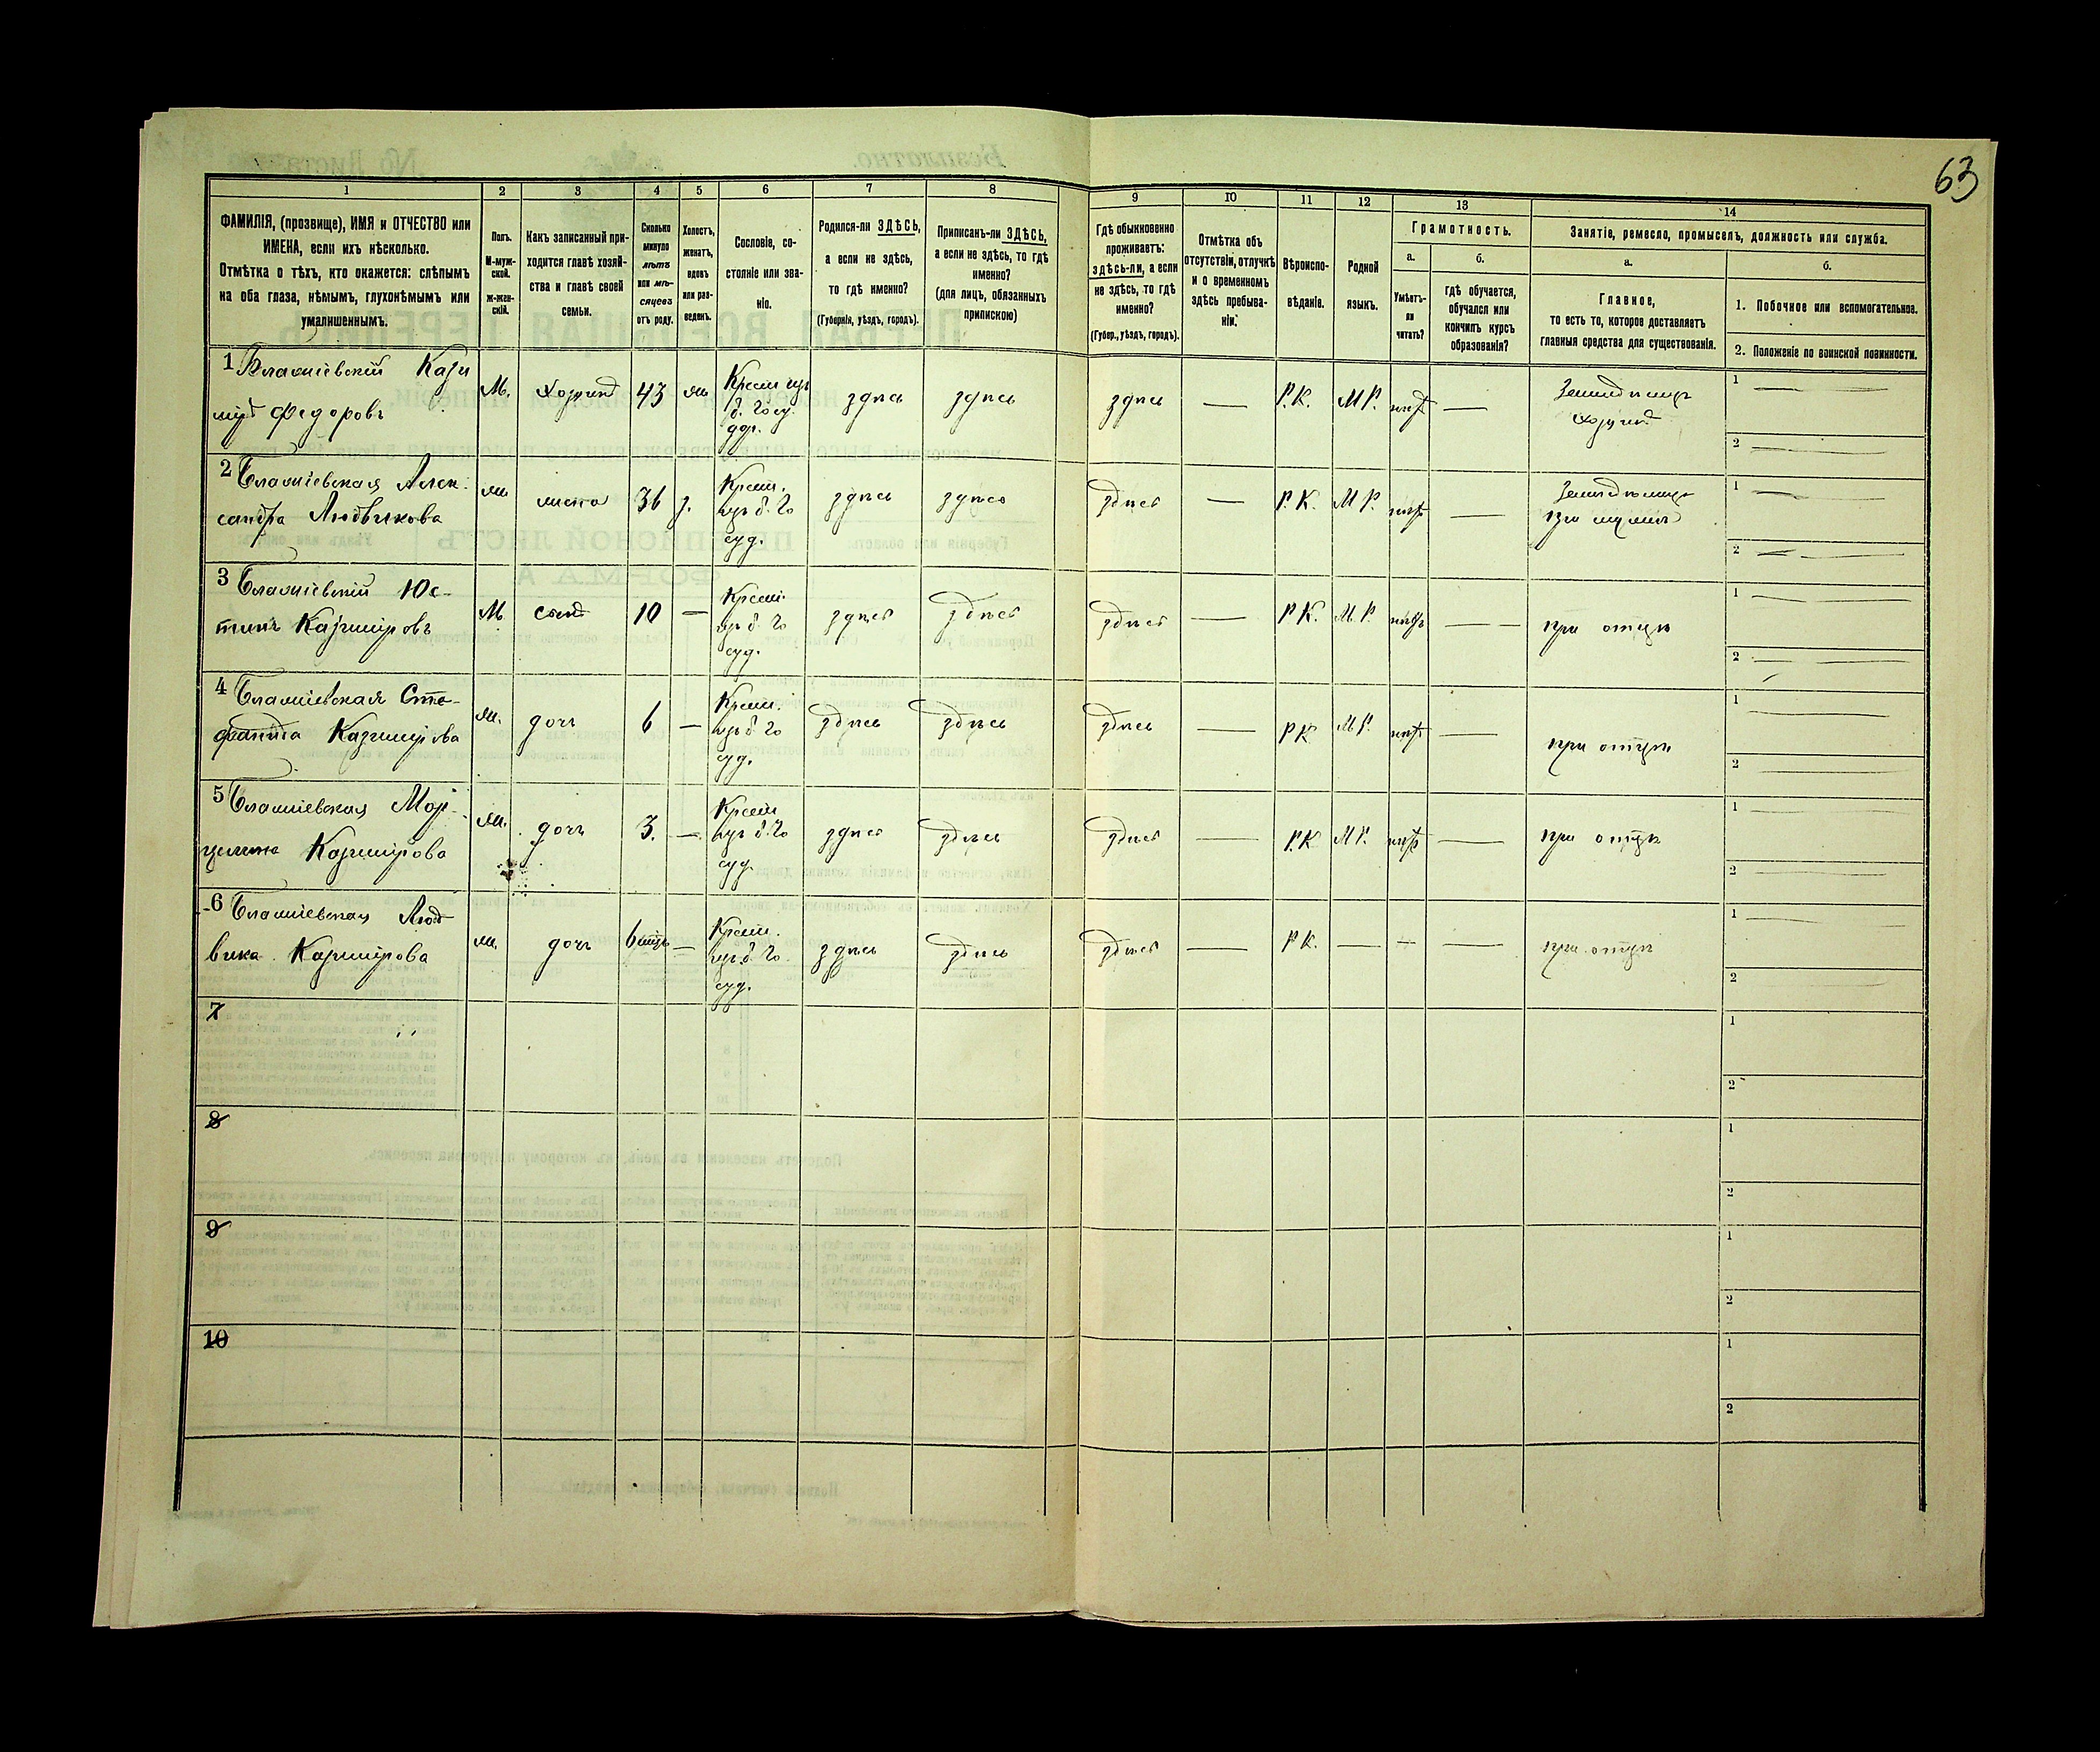 63
1 2 3 4 5 6 7 8 9 10 11 12 13 14
ФАМИЛІЯ, (прозвище), ИМЯ и ОТЧЕСТВО или
ИМЕНА, если ихъ нѣсколько.
Отмѣтка о тѣхъ, кто окажется: слѣпымъ
на оба глаза, нѣмымъ, глухонѣмымъ или
умалишеннымъ.
Полъ.
М-муж-
ской.
ж-жен-
скій.
Какъ записанный при-
ходится главѣ хозяй-
ства и главѣ своей
семьи.
Сколько
минуло
лѣтъ
или мѣ-
сяцевъ
отъ роду.
Холостъ,
женатъ,
вдовъ
или раз-
веденъ.
Сословіе, со-
стояніе или зва-
ніе.
Родился-ли ЗДѢСЬ,
а если не здѣсь,
то гдѣ именно?
(Губернія, уѣздъ, городъ).
Приписанъ-ли ЗДѢСЬ,
а если не здѣсь, то гдѣ
именно?
(для лицъ, обязанныхъ
припискою)
Гдѣ обыкновенно
проживаетъ:
здѣсь-ли, а если
не здѣсь, то гдѣ
именно?
(Губер., уѣздъ, городъ).
Отмѣтка объ
отсутствіи, отлучкѣ
и о временномъ
здѣсь пребыва-
ніи.
Вѣроиспо-
вѣданіе.
Родной
языкъ.
Грамотность.
а.
Умѣетъ-
ли
читать?
б.
Гдѣ обучается,
обучался или
кончилъ курсъ
образованія?
Занятіе, ремесло, промыселъ, должность или служба.
а.
Главное,
то есть то, которое доставляетъ
главныя средства для существованія.
б.
1. Побочное или вспомогательное.
2. Положеніе по воинской повинности.
1 Кази
міръ Федоровъ
М. хозяинъ 43 ж. Крест. изъ
б. го су
дар. здѣсь здѣсь здѣсь — Р.К. М Р. нѣтъ — Земледѣлецъ
хозяинъ
1 —
2 —
2 Алек-
сандра Людвикова
ж жена 36 з. Крест.
изъ б. го
суд. здѣсь здѣсь здѣсь — Р.К. М Р. нѣтъ — Земледѣлецъ
при мужѣ
1 —
2 —
3 Юс-
тинъ Казиміровъ
М. сынъ 10 — Крест.
изъ б. го
суд. здѣсь здѣсь здѣсь — Р.К. М. Р. нѣтъ — при отцѣ
1 —
2 —
4 Сте-
фанида Казимірова
ж. дочь 6 — Крест.
изъ б. го
суд. здѣсь здѣсь здѣсь — Р К М Р. нѣтъ — при отцѣ
1 —
2 —
5 Мар-
целина Казимірова
ж. дочь 3. — Крест
изъ б. го
суд. здѣсь здѣсь здѣсь — Р.К М Р. нѣтъ — при отцѣ
1 —
2 —
6 Люд-
вика Казимірова
ж. дочь 6 мѣс. — Крест.
изъ б. го
суд. здѣсь здѣсь здѣсь — Р К. — — — при отцѣ
1 —
2 —
7
1
2
8
1
2
9
1
2
10
1
2